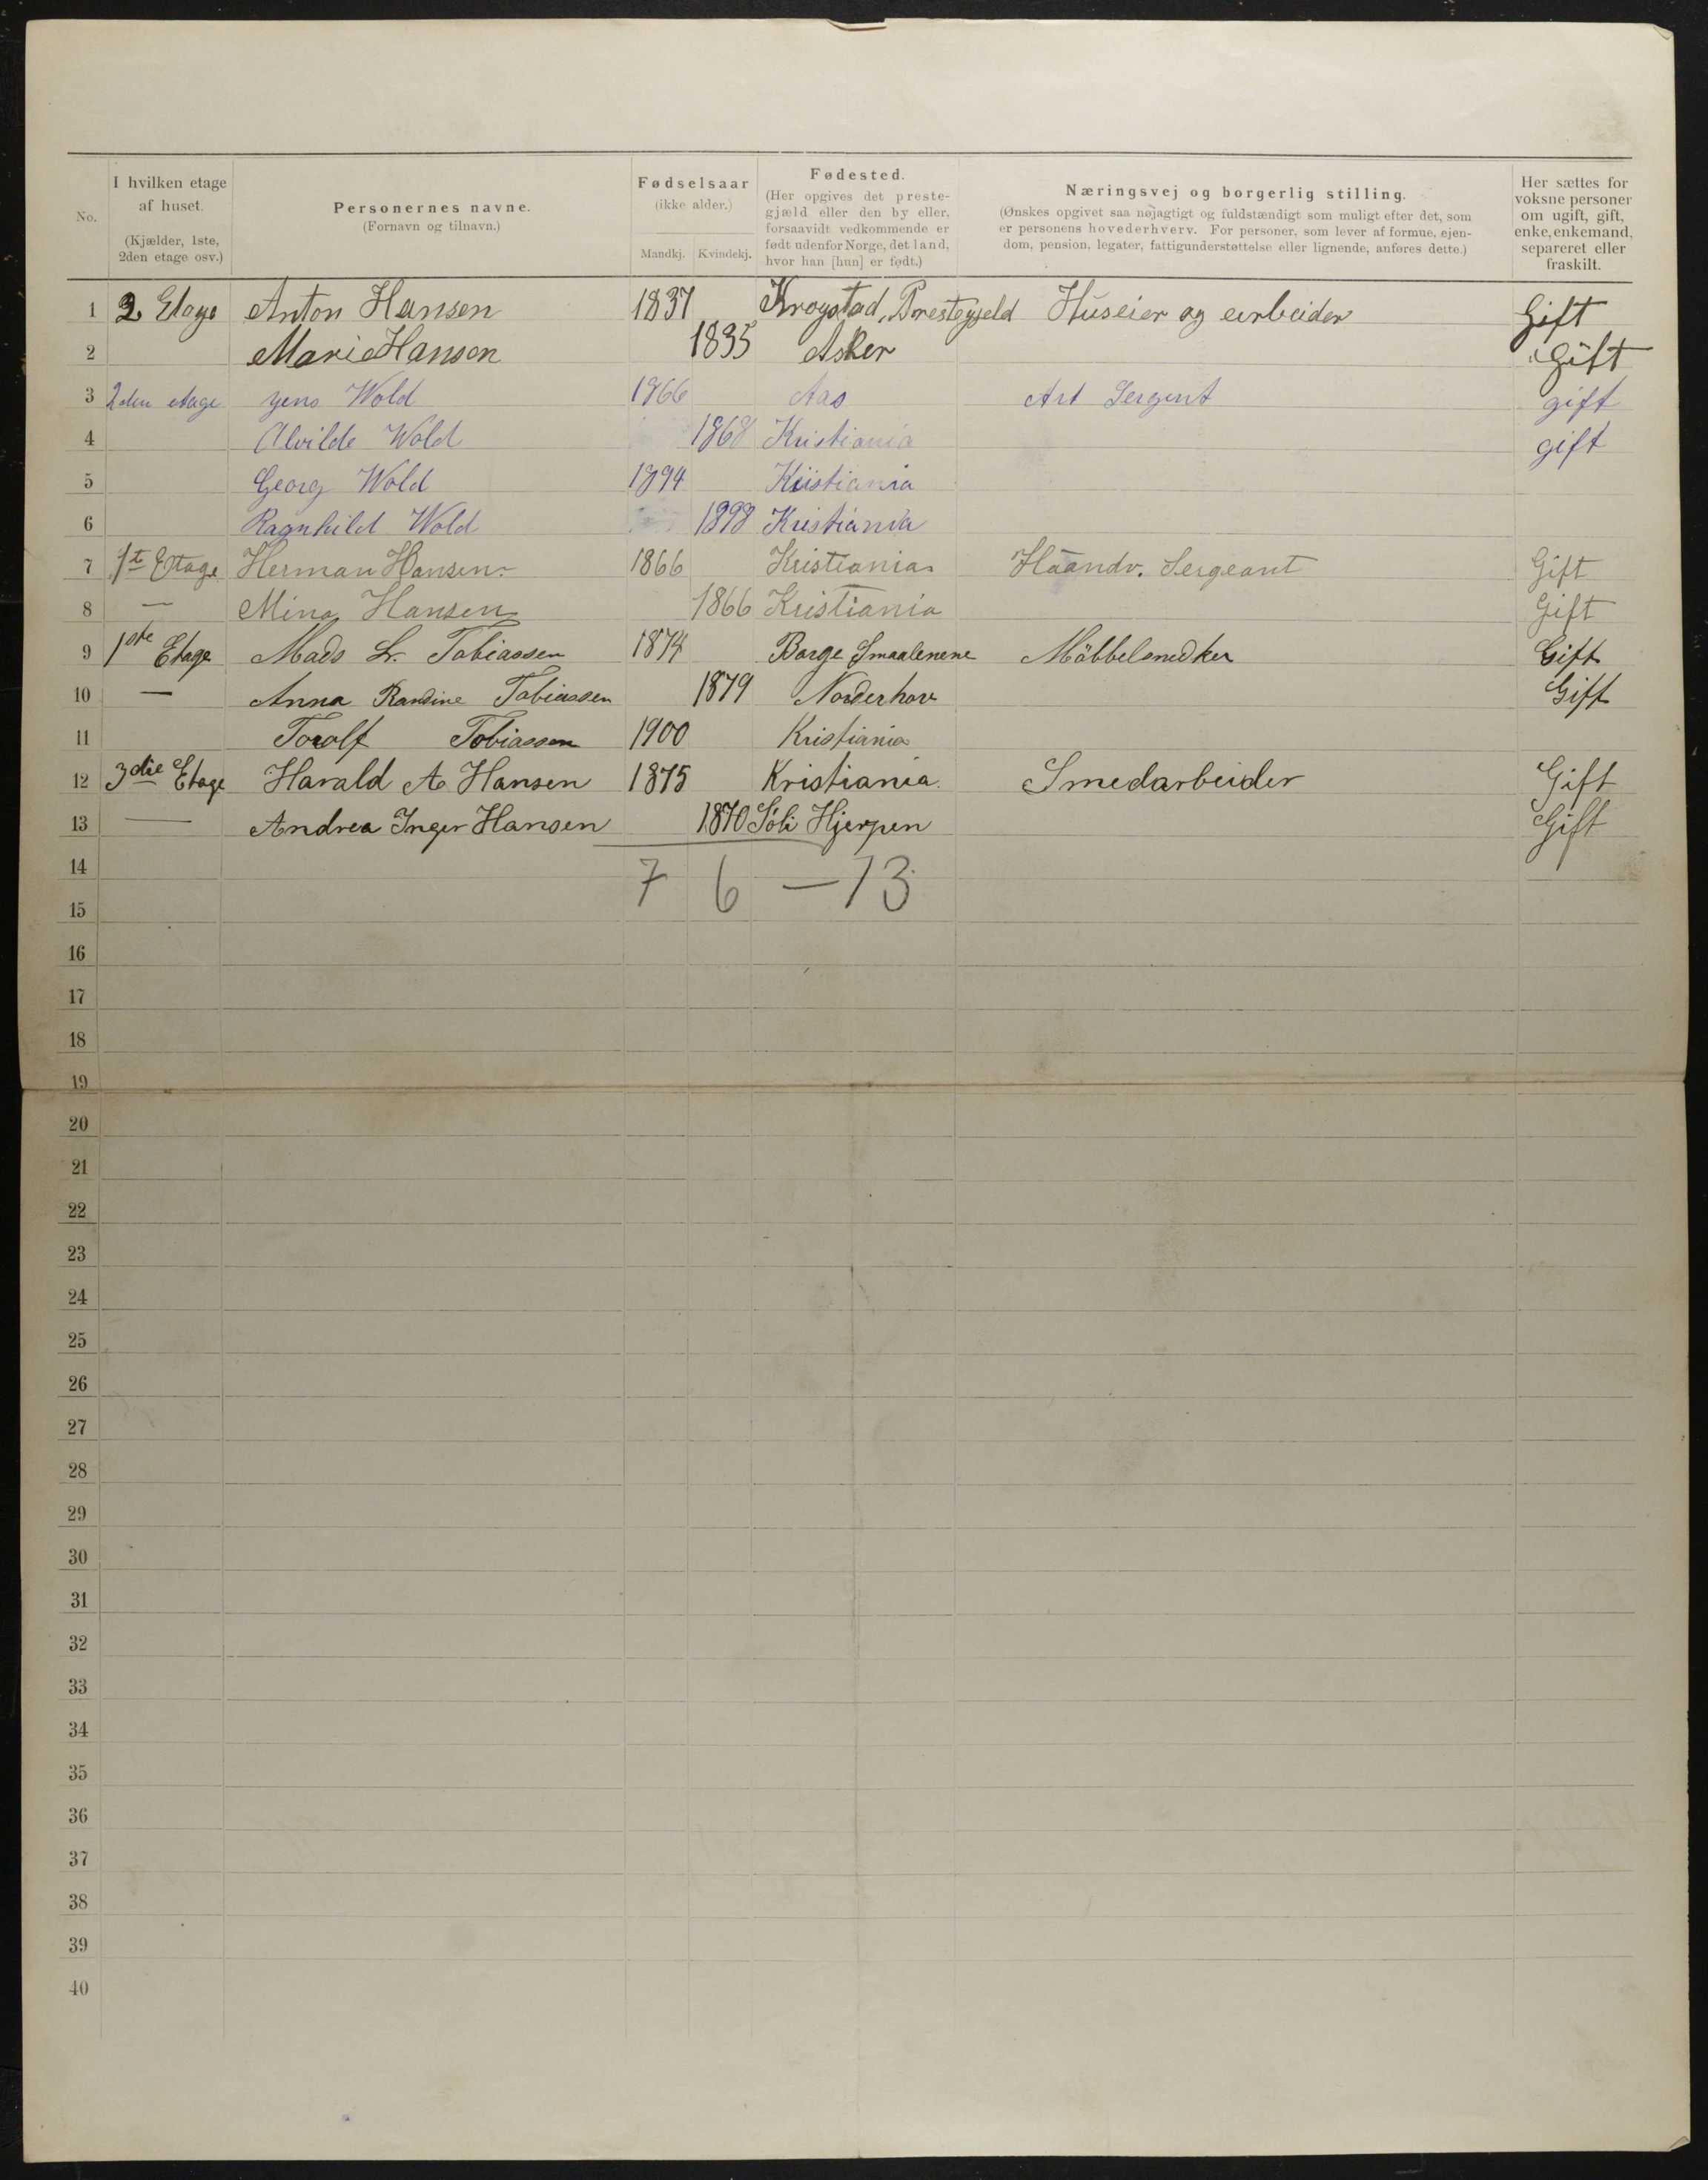 No. | I hvilken etage af huset. (Kjælder, 1ste, 2den etage osv.) | Personernes navne. (Fornavn og tilnavn.) | Fødselsaar (ikke alder.) Mandkj. Kvindekj. | Fødested. (Her opgives det prestegjæld eller den by eller, forsaavidt vedkommende er født udenfor Norge, det land, hvor han [hun] er født.) | Næringsvej og borgerlig stilling. (Ønskes opgivet saa nøjagtigt og fuldstændigt som muligt efter det, som er personens hovederhverv. For personer, som lever af formue, ejendom, pension, legater, fattigunderstøttelse eller lignende, anføres dette.) | Her sættes for voksne personer om ugift, gift, enke, enkemand, separeret eller fraskilt.
1 Etage Anton Hansen 1837 Krogstad, Prestegjeld Huseier og arbeider Gift
2 Marie Hansen 1835 Asker Gift
3 2den etage Jens Wold 1866 Aas Art Sergent gift
4 Alvilde Wold 1868 Kristiania gift
5 Georg Wold 1894 Kristiania
6 Ragnhild Wold 1898 Kristiania
7 1te Etage Herman Hansen 1866 Kristiania Haandv. Sergeant Gift
8 — Mina Hansen 1866 Kristiania Gift
9 1ste Etage Mads L. Tobiassen 1874 Borge Smaalenene Möbbelsnedker Gift
10 — Anna Randine Tobiassen 1879 Norderhov Gift
11 Torolf Tobiassen 1900 Kristiania
12 3die Etage Harald A Hansen 1875 Kristiania Smedarbeider Gift
13 — Andrea Inger Hansen 1870 Hjerpen Gift
14 7 6 — 13
15
16
17
18
19
20
21
22
23
24
25
26
27
28
29
30
31
32
33
34
35
36
37
38
39
40